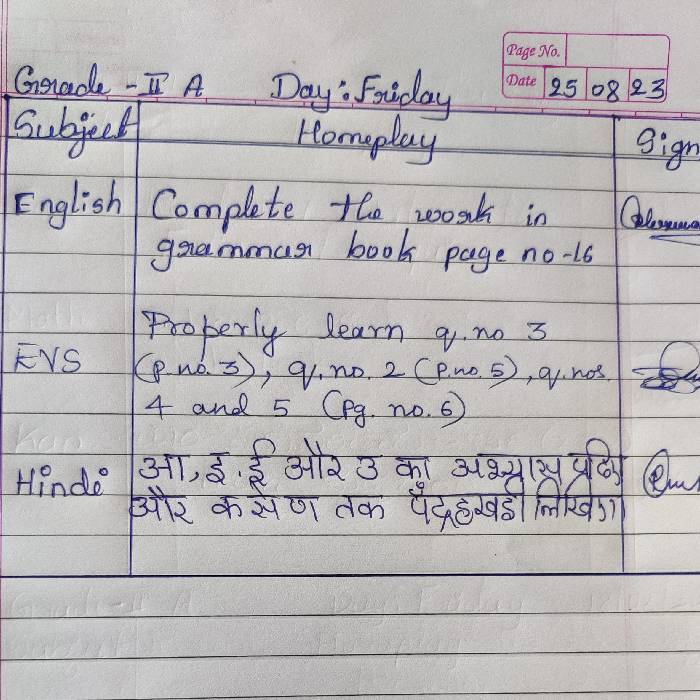 Page No.
Date 25 08 23
Grade - II A Day: Friday
Subject Homeplay Sign
English Complete the work in
grammar book page no-16
Properly learn q.no 3
EVS (p.no.3), q.no. 2 (p.no.5), q.nos.
4 and 5 (Pg. no.6)
Hindi आ, इ, ई और उ का अभ्यास
और क से ण तक लिखिए